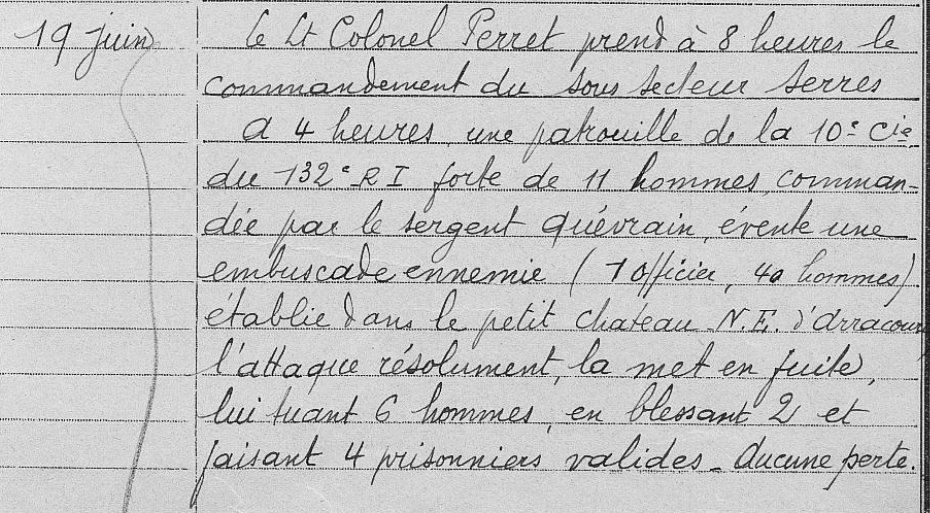 19 juin
Le Lt Colonel Perret prend à 8 heures le
commandement du sous secteur Serres
A 4 heures, une patrouille de la 10e Cie
du 132e R I forte de 11 hommes, comman-
dée par le sergent Quévrain, évente une
embuscade ennemie ( 1 Officier, 40 hommes)
établie dans le petit chateau N.E. d'Arracourt
l'attaque résolument, la met en fuite,
lui tuant 6 hommes, en blessant 2 et
faisant 4 prisonniers valides - Aucune perte.